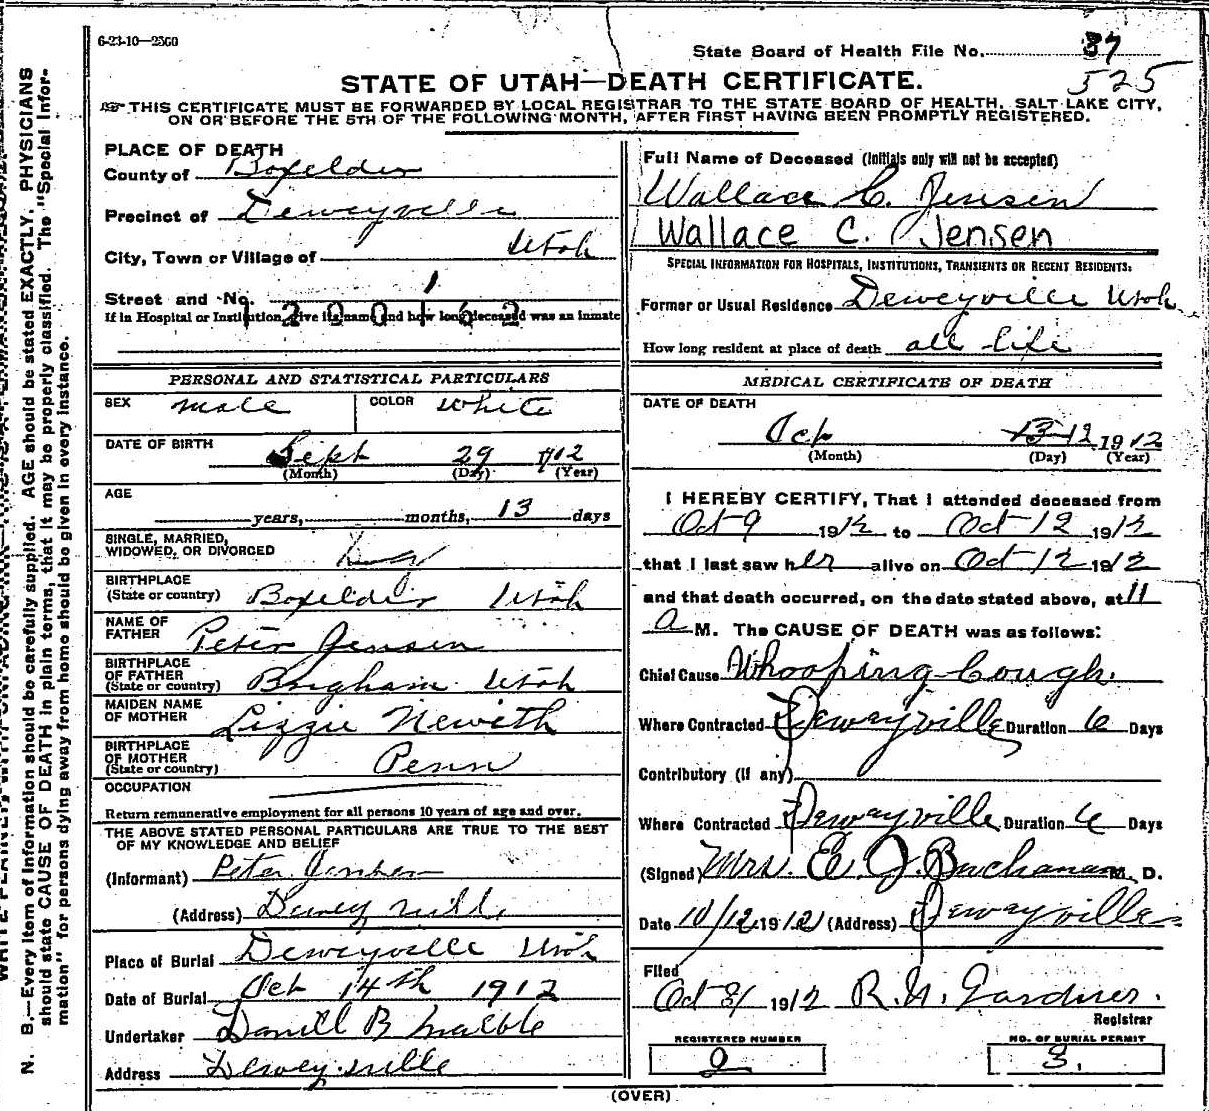 6-23-10—25G0
State Board of Health File No. 37
525
STATE OF UTAH—DEATH CERTIFICATE.
THIS CERTIFICATE MUST BE FORWARDED BY LOCAL REGISTRAR TO THE STATE BOARD OF HEALTH, SALT LAKE CITY,
ON OR BEFORE THE 5TH OF THE FOLLOWING MONTH, AFTER FIRST HAVING BEEN PROMPTLY REGISTERED.
N. B.—Every item of information should be carefully supplied. AGE should be stated EXACTLY. PHYSICIANS
should state CAUSE OF DEATH in plain terms, that it may be properly classified. The "Special Infor-
mation" for persons dying away from home should be given in every instance.
PLACE OF DEATH
County of Boxelder
Precinct of Deweyville
City, Town or Village of Utah
Street and No. 1
1200162
If in Hospital or Institution, give its name and how long deceased was an inmate
PERSONAL AND STATISTICAL PARTICULARS
SEX male COLOR white
DATE OF BIRTH Sept 29 912
(Month) (Day) (Year)
AGE
years, months, 13 days
SINGLE, MARRIED,
WIDOWED, OR DIVORCED
BIRTHPLACE
(State or country) Boxelder Utah
NAME OF
FATHER Peter Jensen
BIRTHPLACE
OF FATHER
(State or country) Brigham Utah
MAIDEN NAME
OF MOTHER Lizzie Neweth
BIRTHPLACE
OF MOTHER
(State or country) Penn
OCCUPATION
Return remunerative employment for all persons 10 years of age and over.
THE ABOVE STATED PERSONAL PARTICULARS ARE TRUE TO THE BEST
OF MY KNOWLEDGE AND BELIEF
(Informant) Peter Jensen
(Address) Deweyville
Place of Burial Deweyville Utah
Date of Burial Oct 14th 1912
Undertaker Daniell B
Address Deweyville
Full Name of Deceased (Initials only will not be accepted)
Wallace C. Jensen
Wallace C. Jensen
SPECIAL INFORMATION FOR HOSPITALS, INSTITUTIONS, TRANSIENTS OR RECENT RESIDENTS:
Former or Usual Residence Deweyville Utah
How long resident at place of death all life
MEDICAL CERTIFICATE OF DEATH
DATE OF DEATH
Oct 13 12 1912
(Month) (Day) (Year)
I HEREBY CERTIFY, That I attended deceased from
Oct 9 1912 to Oct 12 1912
that I last saw her alive on Oct 12 1912
and that death occurred, on the date stated above, at 11
a M. The CAUSE OF DEATH was as follows:
Chief Cause Whooping Cough.
Where Contracted Dewayville Duration 6 Days
Contributory (if any)
Where Contracted Dewayville Duration 6 Days
(Signed) Mrs. E. J. Buchanan M. D.
Date 10/12 1912 (Address) Dewayville
Filed
Oct 31 1912 R. N. Gardner.
Registrar
REGISTERED NUMBER
2
NO. OF BURIAL PERMIT
3.
(OVER)